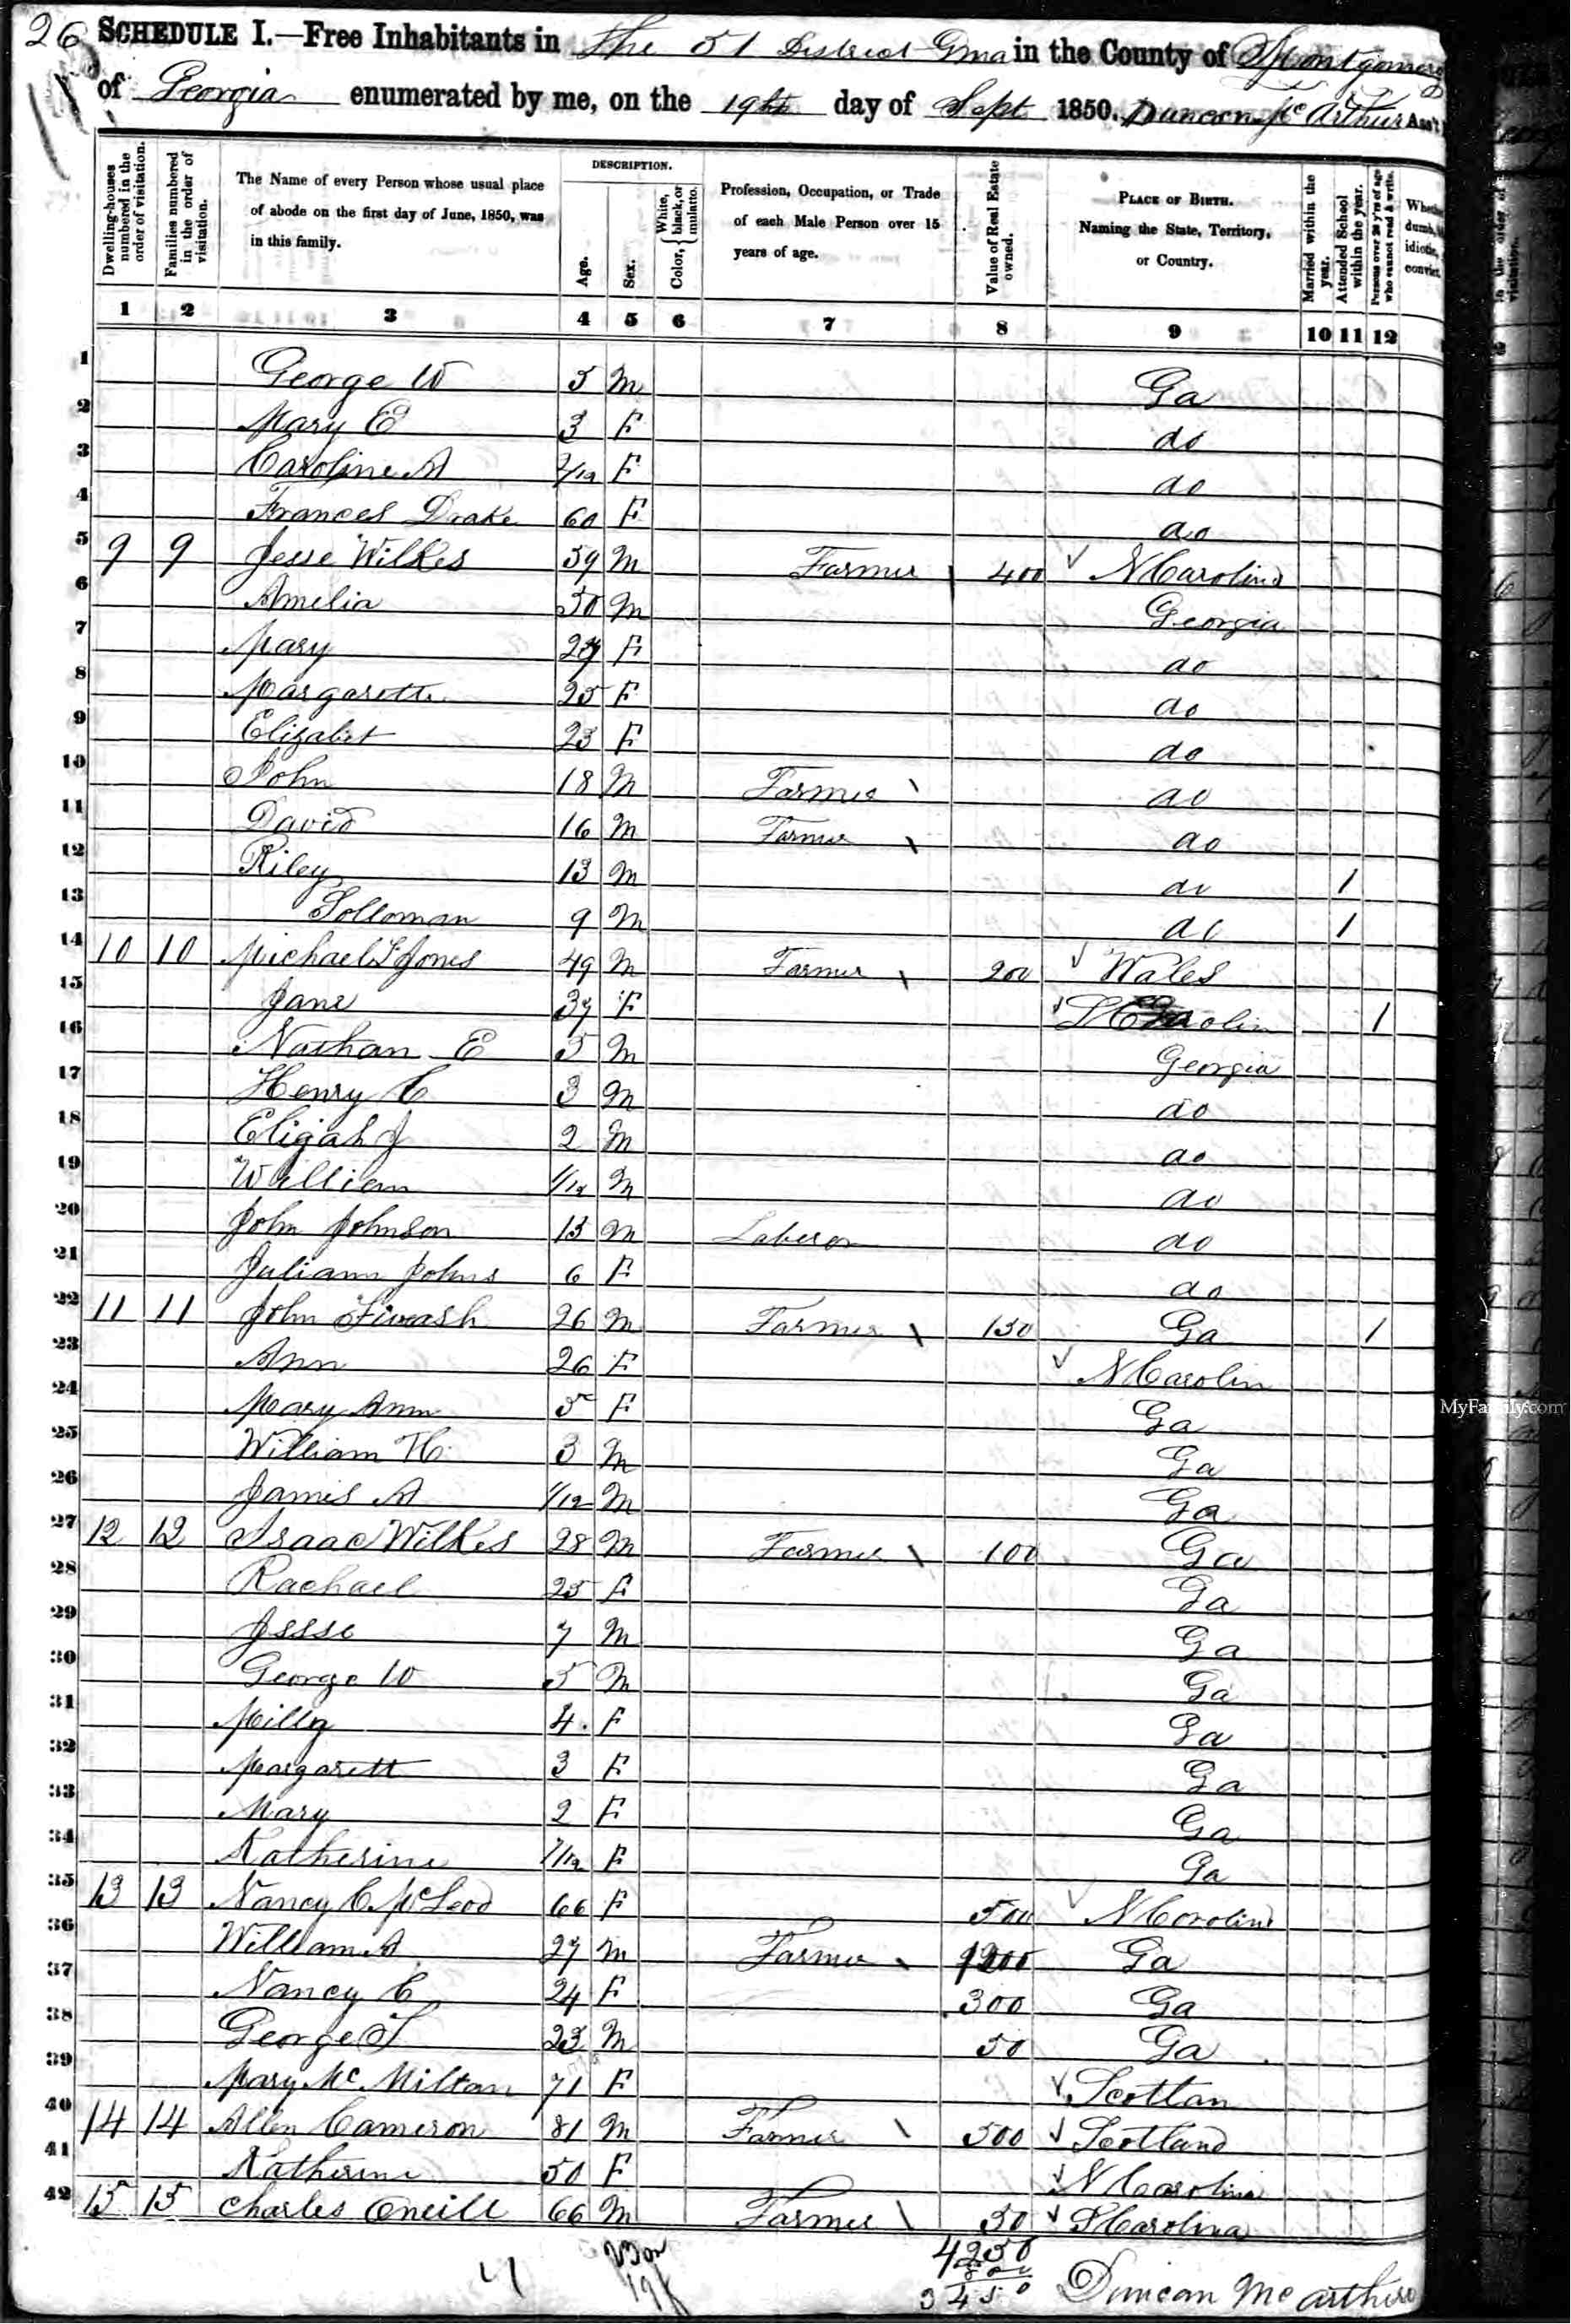 26 SCHEDULE I.—Free Inhabitants in The 51 District Gma in the County of Montgomery
of Georgia enumerated by me, on the 19th day of Sept 1850. Duncan McArthur Ass't
Dwelling-houses numbered in the order of visitation.
Families numbered in the order of visitation.
The Name of every Person whose usual place of abode on the first day of June, 1850, was in this family.
DESCRIPTION.
Age.
Sex.
Color, White, black, or mulatto.
Profession, Occupation, or Trade of each Male Person over 15 years of age.
Value of Real Estate owned.
PLACE OF BIRTH. Naming the State, Territory, or Country.
Married within the year.
Attended School within the year.
Persons over 20 y'rs of age who cannot read & write.
1 2 3 4 5 6 7 8 9 10 11 12
1 George W 5 M Ga
2 Mary E 3 F do
3 Caroline A /12 F do
4 Frances Drake 60 F do
5 9 9 Jesse Wilkes 59 M Farmer 400 N Carolina
6 Amelia 50 M Georgia
7 Mary 27 F do
8 Margarett 25 F do
9 Elizabet 23 F do
10 John 18 M Farmer do
11 David 16 M Farmer do
12 Riley 13 M do 1
13 Solloman 9 M do 1
14 10 10 Michael Jones 49 M Farmer 200 Wales
15 Jane 37 F S Carolin 1
16 Nathan E 5 M Georgia
17 Henry C 3 M do
18 Eligah J 2 M do
19 William 1/12 M do
20 John Johnson 15 M Laberor do
21 Juliann Johns 6 F do
22 11 11 John Fiveash 26 M Farmer 150 Ga 1
23 Ann 26 F N Carolin
24 Mary Ann 5 F Ga
25 William H 3 M Ga
26 James A 1/12 M Ga
27 12 12 Isaac Wilkes 28 M Farmer 100 Ga
28 Rachael 25 F Ga
29 Jesse 7 M Ga
30 George W 5 M Ga
31 Milly 4 F Ga
32 Margarett 3 F Ga
33 Mary 2 F Ga
34 Katherine /12 F Ga
35 13 13 Nancy C McLeod 66 F 500 N Carolina
36 William A 27 M Farmer 1200 Ga
37 Nancy C 24 F 300 Ga
38 George T 23 M 50 Ga
39 Mary Mc Miltan 71 F Scotlan
40 14 14 Allen Cameron 81 M Farmer 500 Scotland
41 Katherine 50 F N Carolina
42 15 15 Charles Oneill 66 M Farmer 50 S Carolina
4250
3450
Duncan McArthur
MyFamily.com